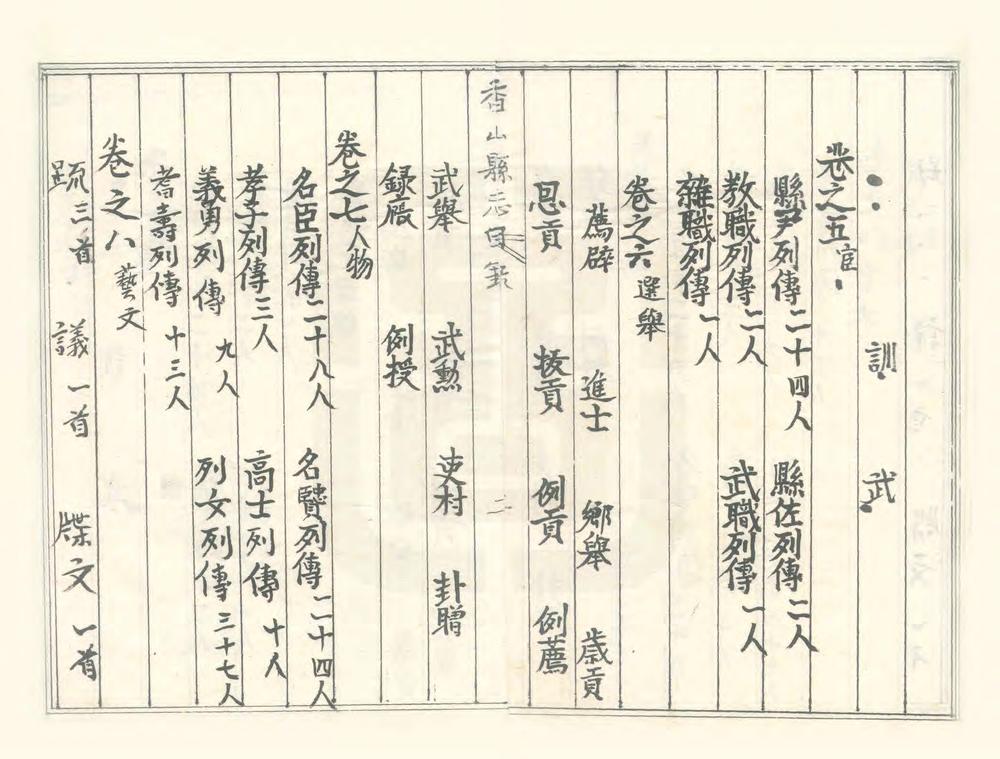 訓 武
卷之五 宦
縣尹列傳二十四人 縣佐列傳二人
教職列傳二人 武職列傳一人
雜職列傳一人
卷之六 選舉
薦辟 進士 鄉舉 歲貢
恩貢 拔貢 例貢 例薦
香山縣志目錄 二
武舉 武勲 吏材 封贈
録廕 例授
卷之七 人物
名臣列傳二十八人 名賢列傳二十四人
孝子列傳三人 高士列傳十人
義勇列傳九人 列女列傳三十七人
耆壽列傳十三人
卷之八 藝文
疏三首 議一首 牒文一首